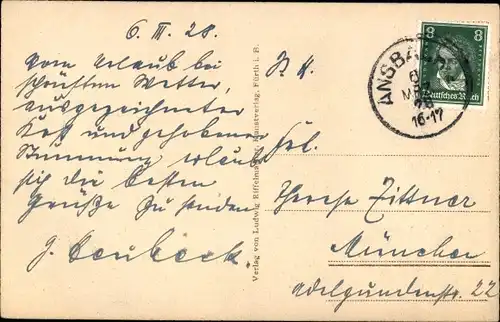 6. III. 28.
Vom Urlaub bei
schönstem Wetter,
ausgezeichneter
Kost und gehobener
Stimmung erlaubt
sich die besten
Grüße zu senden
J.
Verlag von Ludwig Riffelmacher, Kunstverlag, Fürth i. B.
ANSBACH
16-17
8 8
Deutsches Reich
P. K.
Frl.
Therese Zittner
München
Adelgundenstr. 22